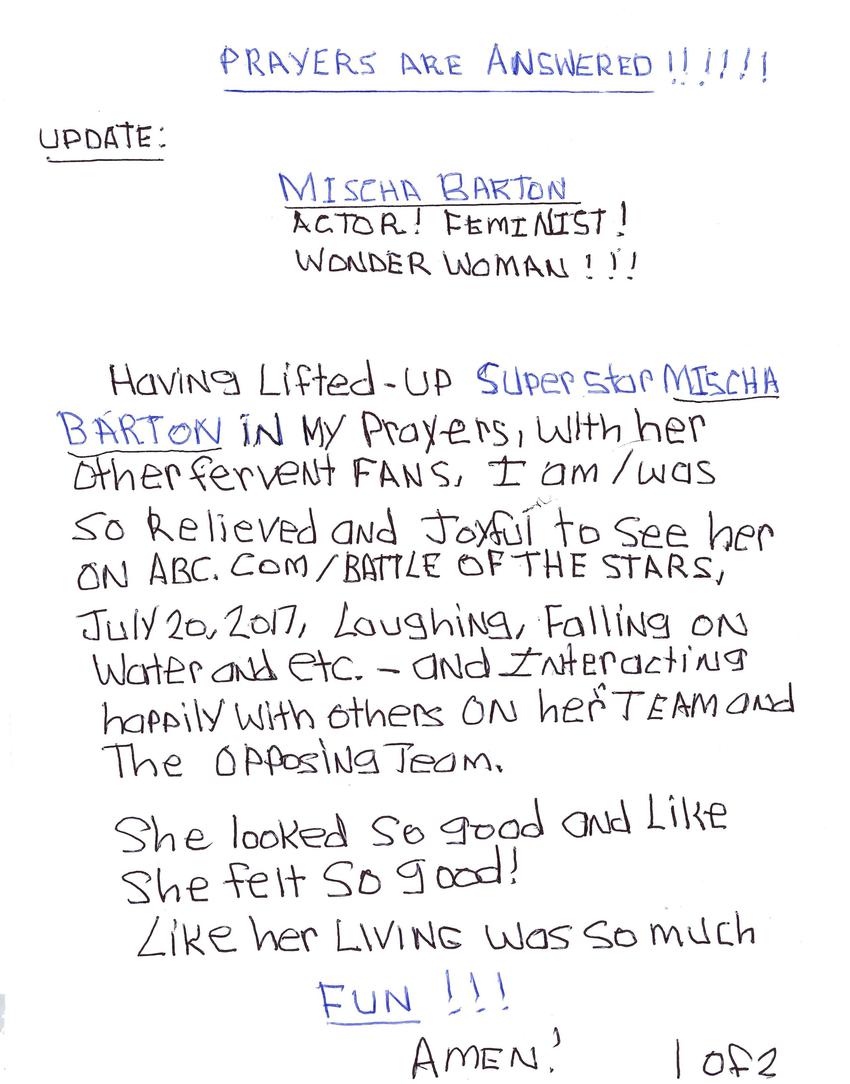 PRAYERS ARE ANSWERED !!!!!!
UPDATE:
MISCHA BARTON
ACTOR! FEMINIST!
WONDER WOMAN !!!
Having Lifted-UP Superstar MISCHA
BARTON IN My Prayers, With her
other fervent FANS, I am/was
So Relieved and Joyful to See her
ON ABC.COM/BATTLE OF THE STARS,
July 20, 2017, Laughing, Falling ON
Water and etc. - and Interacting
happily With others ON her TEAM and
The Opposing Team.
She looked So good and Like
She felt So good!
Like her LIVING Was So much
FUN !!!
AMEN!
1 of 2